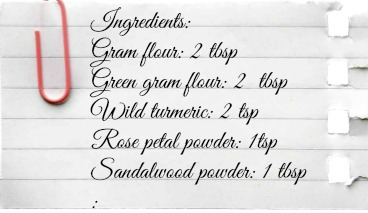 Ingredients:
Gram flour: 2 tbsp
Green gram flour: 2 tbsp
Wild turmeric: 2 tsp
Rose petal powder: 1tsp
Sandalwood powder: 1 tbsp
: